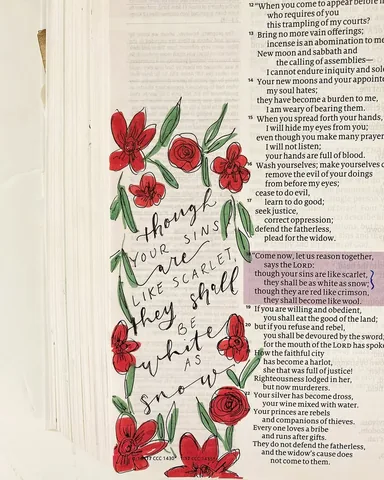 though
YOUR SINS
are
LIKE SCARLET,
they shall
BE
white
AS
snow
CCC 1430
12 "When you come to appear before
who requires of you
this trampling of my courts?
13 Bring no more vain offerings;
incense is an abomination to
New moon and sabbath and
the calling of assemblies—
I cannot endure iniquity and
14 Your new moons and your
my soul hates;
they have become a burden to me,
I am weary of bearing them.
15 When you spread forth your hands,
I will hide my eyes from you;
even though you make many
I will not listen;
your hands are full of blood.
16 Wash yourselves; make yourselves
remove the evil of your doings
from before my eyes;
cease to do evil,
17 learn to do good;
seek justice,
correct oppression;
defend the fatherless,
plead for the widow.
"Come now, let us reason together,
says the LORD:
though your sins are like scarlet,
they shall be as white as snow;
though they are red like crimson,
they shall become like wool.
19 If you are willing and obedient,
you shall eat the good of the land;
20 but if you refuse and rebel,
you shall be devoured by the sword;
for the mouth of the LORD has
How the faithful city
has become a harlot,
she that was full of justice!
Righteousness lodged in her,
but now murderers.
22 Your silver has become dross,
your wine mixed with water.
Your princes are rebels
and companions of thieves.
Every one loves a bribe
and runs after gifts.
They do not defend the fatherless,
and the widow's cause does
not come to them.